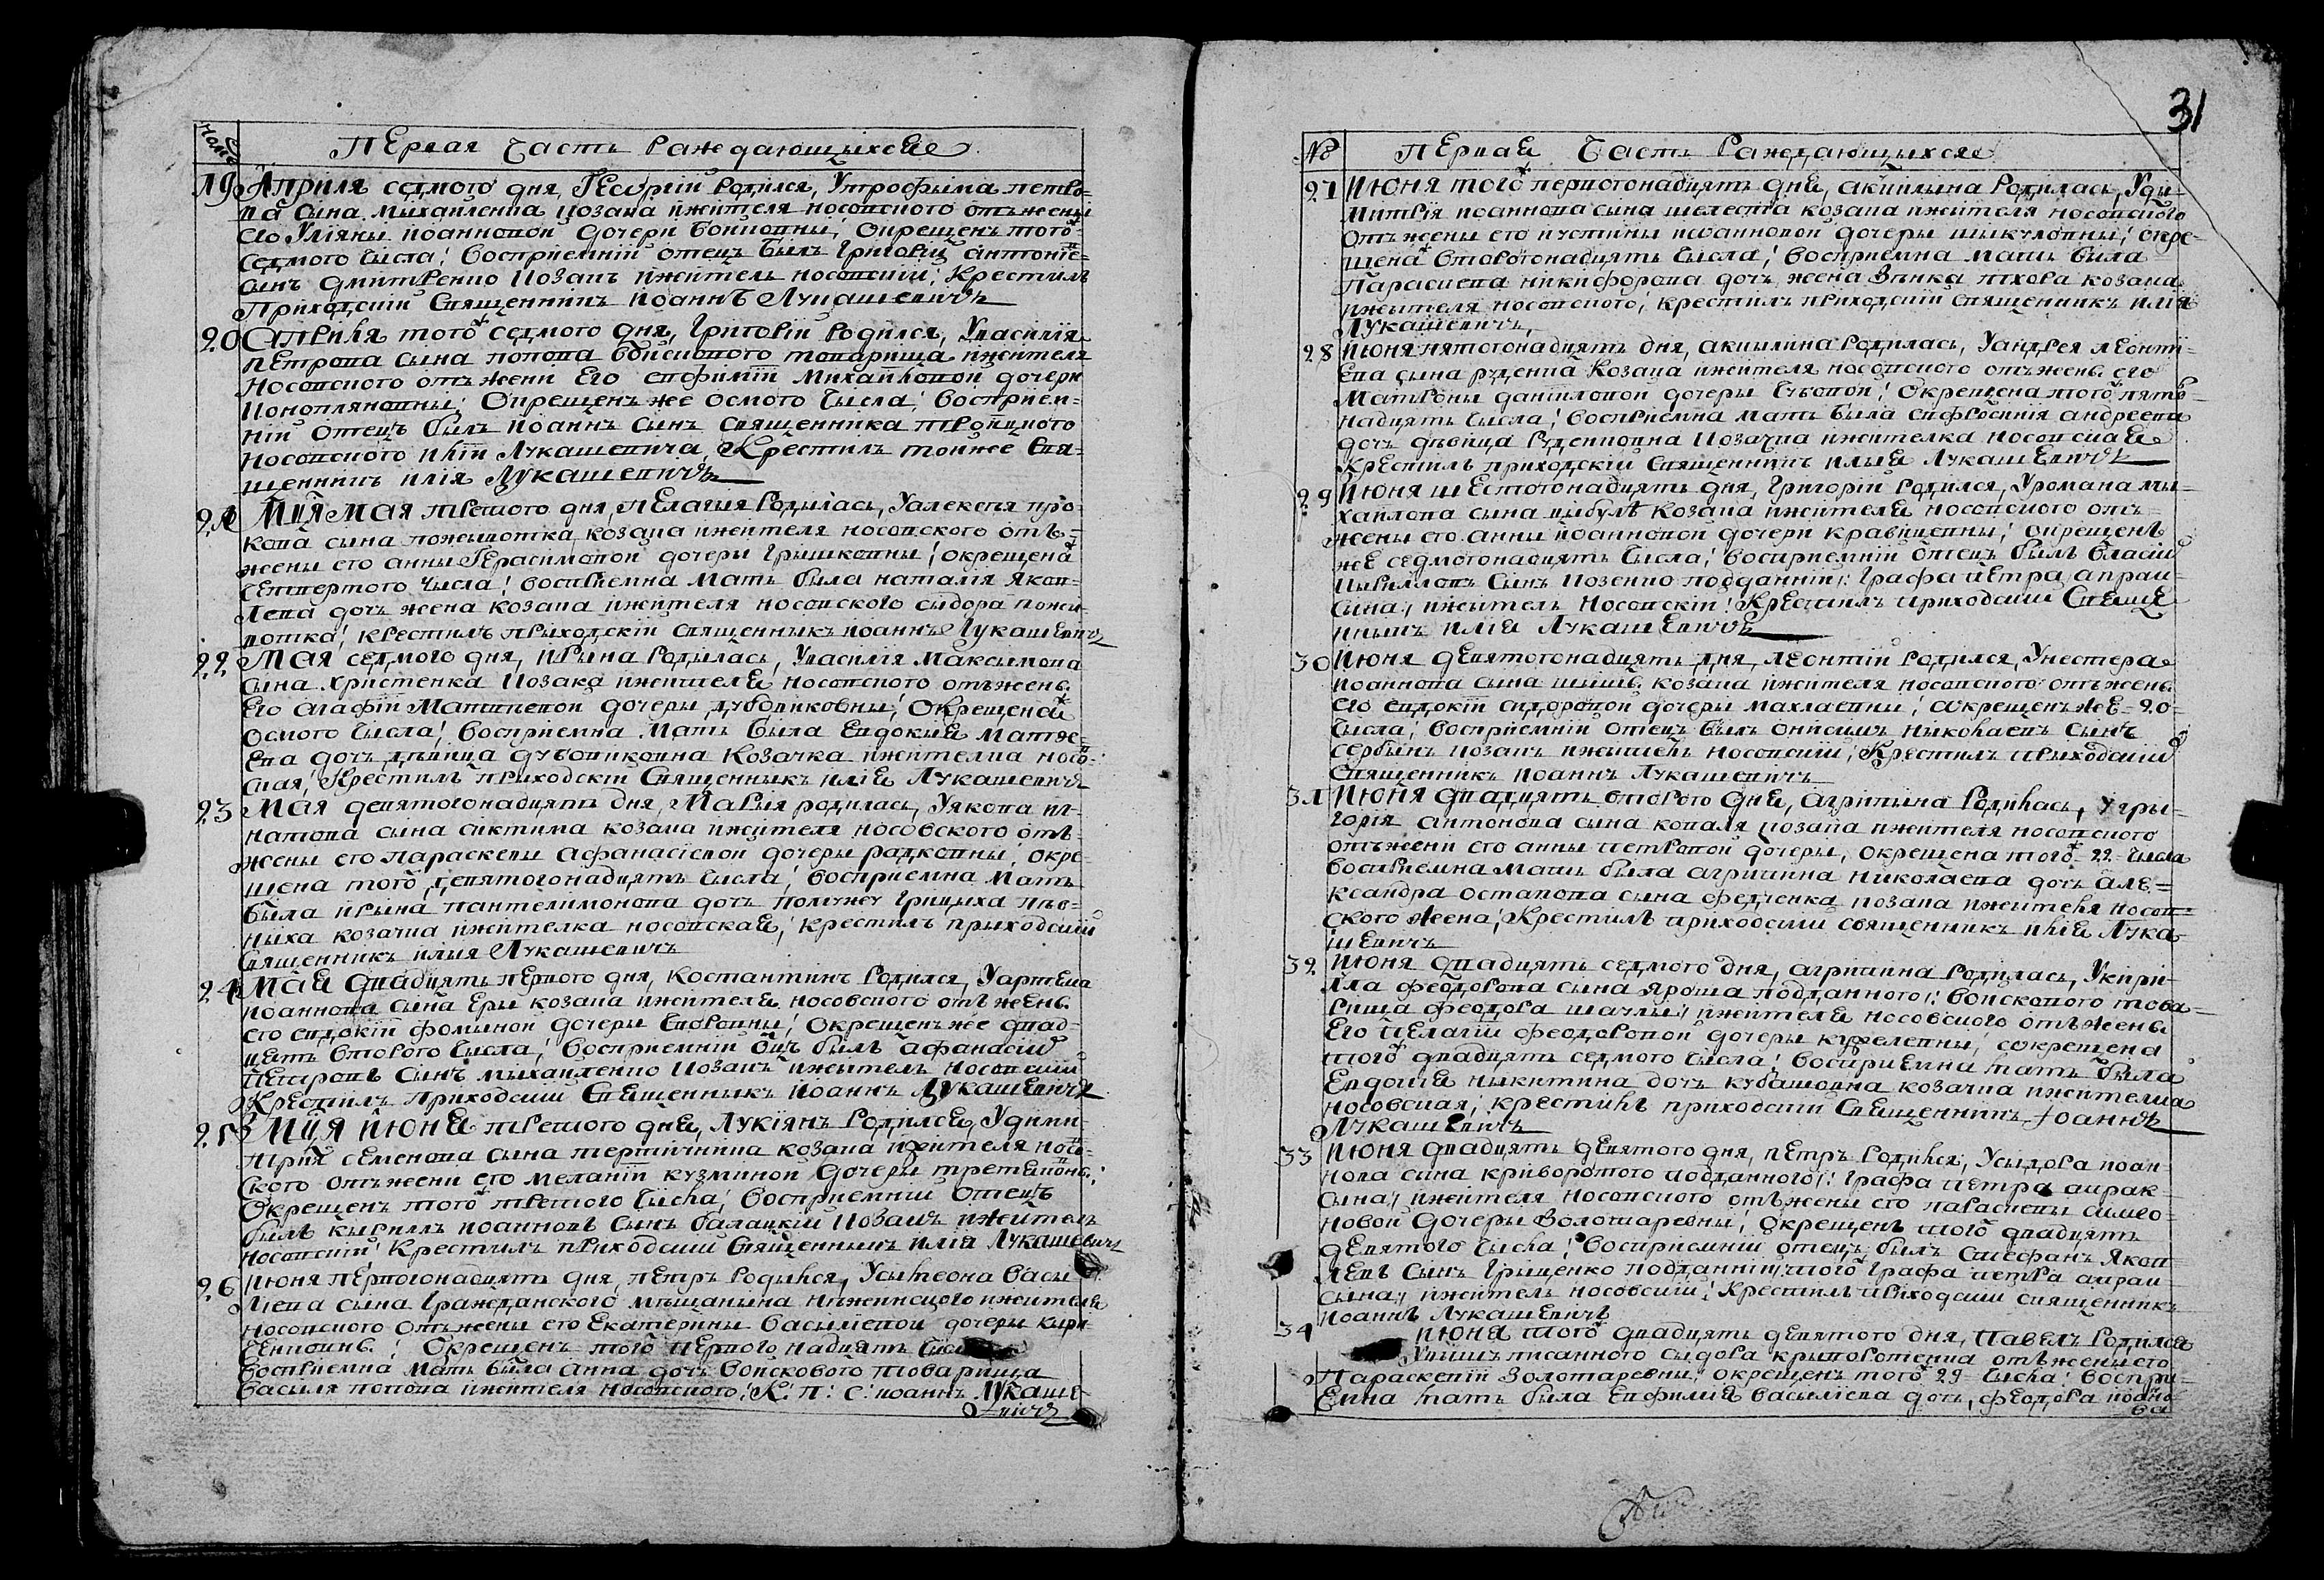 Номе
Первая Часть Раждающыхся
19 Априля седмого дня, Георгій Родился, Утрофыма петро-
ва сына Михайленка козака ижителя носовского отъжени
его Улiяны Иоанновой дочери окрещенъ того
седмого числа; восприемній отецъ былъ Григорій Антоніе-
сынъ Дмитренко козакъ ижитель носовскій; Крестилъ
Приходскій Священникъ Иоаннъ Лукашевичъ
20 Априля того седмого дня, Григорій Родился, Увасилія
Петрова сына попова войскового товарища ижителя
Носовского отъжени Его Евфиміи Михайловой дочери
Конопляновны; Окрещенъже осмого числа; восприем-
ній отецъ былъ Иоаннъ сынъ священника троицкого
Носовского Иліи Лукашевича, Крестилъ тойже Свя-
щенникъ Илія Лукашевичъ
21 Мця мая третого дня, Пелагия Родылась, Уалексея про-
копа сына козака ижителя носовского отъ-
жены его Анны Герасимовой дочеры Гришковны; окрещена
четвертого числа; восприемна мать была наталія Яков-
лева дочъ жена козака ижителя носовского сыдора пожи-
вотка; крестилъ приходскій священныкъ Иоаннъ Лукашевичъ
22 Мая седмого дня, Ирына Родылась, Увасилія Максымова
сына Христенка козака ижителя носовского отъжены
Его Агафіи Матвѣевой дочеры дубовиковны; Окрещена
осмого числа; восприемна Мать была Евдокия Матвѣ-
ева дочъ дѣвица дубовиковна Козачка ижителка носов-
ская, Крестилъ приходскій Священныкъ илія Лукашевичъ
23 Мая девятогонадцять дня, Марія родилась, Уякова иг-
натова сына сиктима козака ижителя носовского отъ-
жены его Параскевы Афанасіевой дочеры радковны; окре-
щена того девятогонадцять числа; восприемна мать
была ирына пантелимонова дочъ Грицыха пѣв-
ныха козачка ижителка носовская; крестилъ прыходскій
Священникъ илия Лукашевичъ
24 Мая двадцять первого дня, Костантинъ Родился, Уартема
Иоаннова сына Еры козака ижителя носовского отъжены
его евдокіи фоминой дочеры окрещенъже двад-
цять второго числа; восприемній оцъ былъ Афанасій
Петровъ сынъ Мыхайленко козакъ ижитель носовскій
Крестилъ Приходскій Священныкъ Иоаннъ Лукашевичъ
25 Мця июня третого дня, Лукіянъ Родился, Удими-
трия Семенова сына козака ижителя носов-
ского отъжени его меланіи кузминой дочеры
Окрещенъ того третого числа; восприемній отецъ
былъ кырилъ иоанновъ сынъ балацкій козакъ ижитель
носовскій; Крестилъ приходскій Священныкъ илия Лукашевичъ
26 Июня первогонадцять дня, петръ Родылся, Усымеона васы-
лiева сына гражданского мѣщанына нѣжинского ижителя
носовского отъжены его Екатерины Васылiевой дочери кири-
ченковны; Окрещенъ того первого надцять
восприемна мать была Анна дочъ войскового товарища
Василя попова ижителя носовского; К: П: С: иоаннъ Лукаше-
вичъ
31
№ Первая Часть Раждающыхся
27 Июня того первогонадцять дня, Акилина Родилась, Уди-
митрія Иоаннова сына шелеста козака ижителя носовского
отъжены его иустины Иоанновой дочеры окре-
щена второгонадцять числа; восприемна мать была
Параскева никифорова дочъ жена козака
ижителя носовского; крестилъ приходскій священникъ илія
Лукашевичъ
28 Июня пятогонадцять дня, акилина Родилась, Уандрея леонті-
ева сына руденка Козака ижителя носовского отъжены его
Матроны даниловой дочеры окрещена того пято-
надцять числа; восприемна мать была Евфросинія Андреева
дочъ дѣвица Руденковна козачка ижителка носовская
Крестилъ приходскій Священникъ Илыя Лукашевичъ
29 Июня шестогонадцять дня, Григорій Родился, Уромана мы-
хайлова сына цыбулѣ козака ижителя носовского отъ-
жены его анны иоанновой дочери кравцевны; окрещенъ
же седмогонадцять числа; восприемній отецъ былъ Власій
Кириловъ сынъ козенко подданній: Графа Петра апрак-
сина; ижитель Носовскій; Крестилъ приходскій Свяще
нныкъ илія Лукашевичъ
30 Июня девятогонадцять дня, Леонтій Родился, Унестера
Иоаннова сына козака ижителя носовского отъжены
его евдокіи сидоровой дочеры махлаевны; окрещенъже 20
числа; восприемній отецъ былъ онисимъ николаевъ сынъ
сербынъ козакъ ижитель носовскій; Крестилъ приходскій
Священникъ Иоаннъ Лукашевичъ
31 Июня двадцять второго дня, Агрипына Родилась, Угры-
горія Антонова сына коваля козака ижителя носовского
отъжени его анны петровой дочеры, окрещена того 22 числа
восприемна мать была агрипина николаева дочъ але-
ксандра остапова сына федченка козака ижителя носов-
ского жена; Крестилъ приходскій священникъ илія Лука-
шевичъ
32 Июня двадцять седмого дня, агрипина Родилась, Укири-
лла феодорова сына яроша подданного: войскового това-
рища феодора ижителя носовского отъжены
Его Пелагіи феодоровой дочеры окрещена
того двадцять седмого числа; восприемна мать была
Евдокія ныкитина дочъ кубашовна козачка ижителка
носовская; крестилъ приходскій Священникъ Иоаннъ
Лукашевичъ
33 Июня двадцять девятого дня, петръ Родился, Усыдора иоан-
нова сина криворотого подданного: графа петра апрак-
сына; ижителя носовского отъжены его параскевы симео-
новой дочеры Золотаревны; окрещенъ того двадцять
девятого числа; восприемній отецъ былъ Стефанъ Яков
левъ сынъ Грищенко подданній: того Графа петра апрак
сына; ижитель носовскій; Крестилъ приходскій священникъ
Иоаннъ Лукашевичъ
34 Июня того двадцять девятого дня, Павелъ Родился
Увишъписанного сыдора криворотенка отъжены его
Параскевіи Золотаревны; окрещенъ того 29 числа; воспри-
емна мать была Евфимія Васыліева дочъ, феодора иоано-
ва